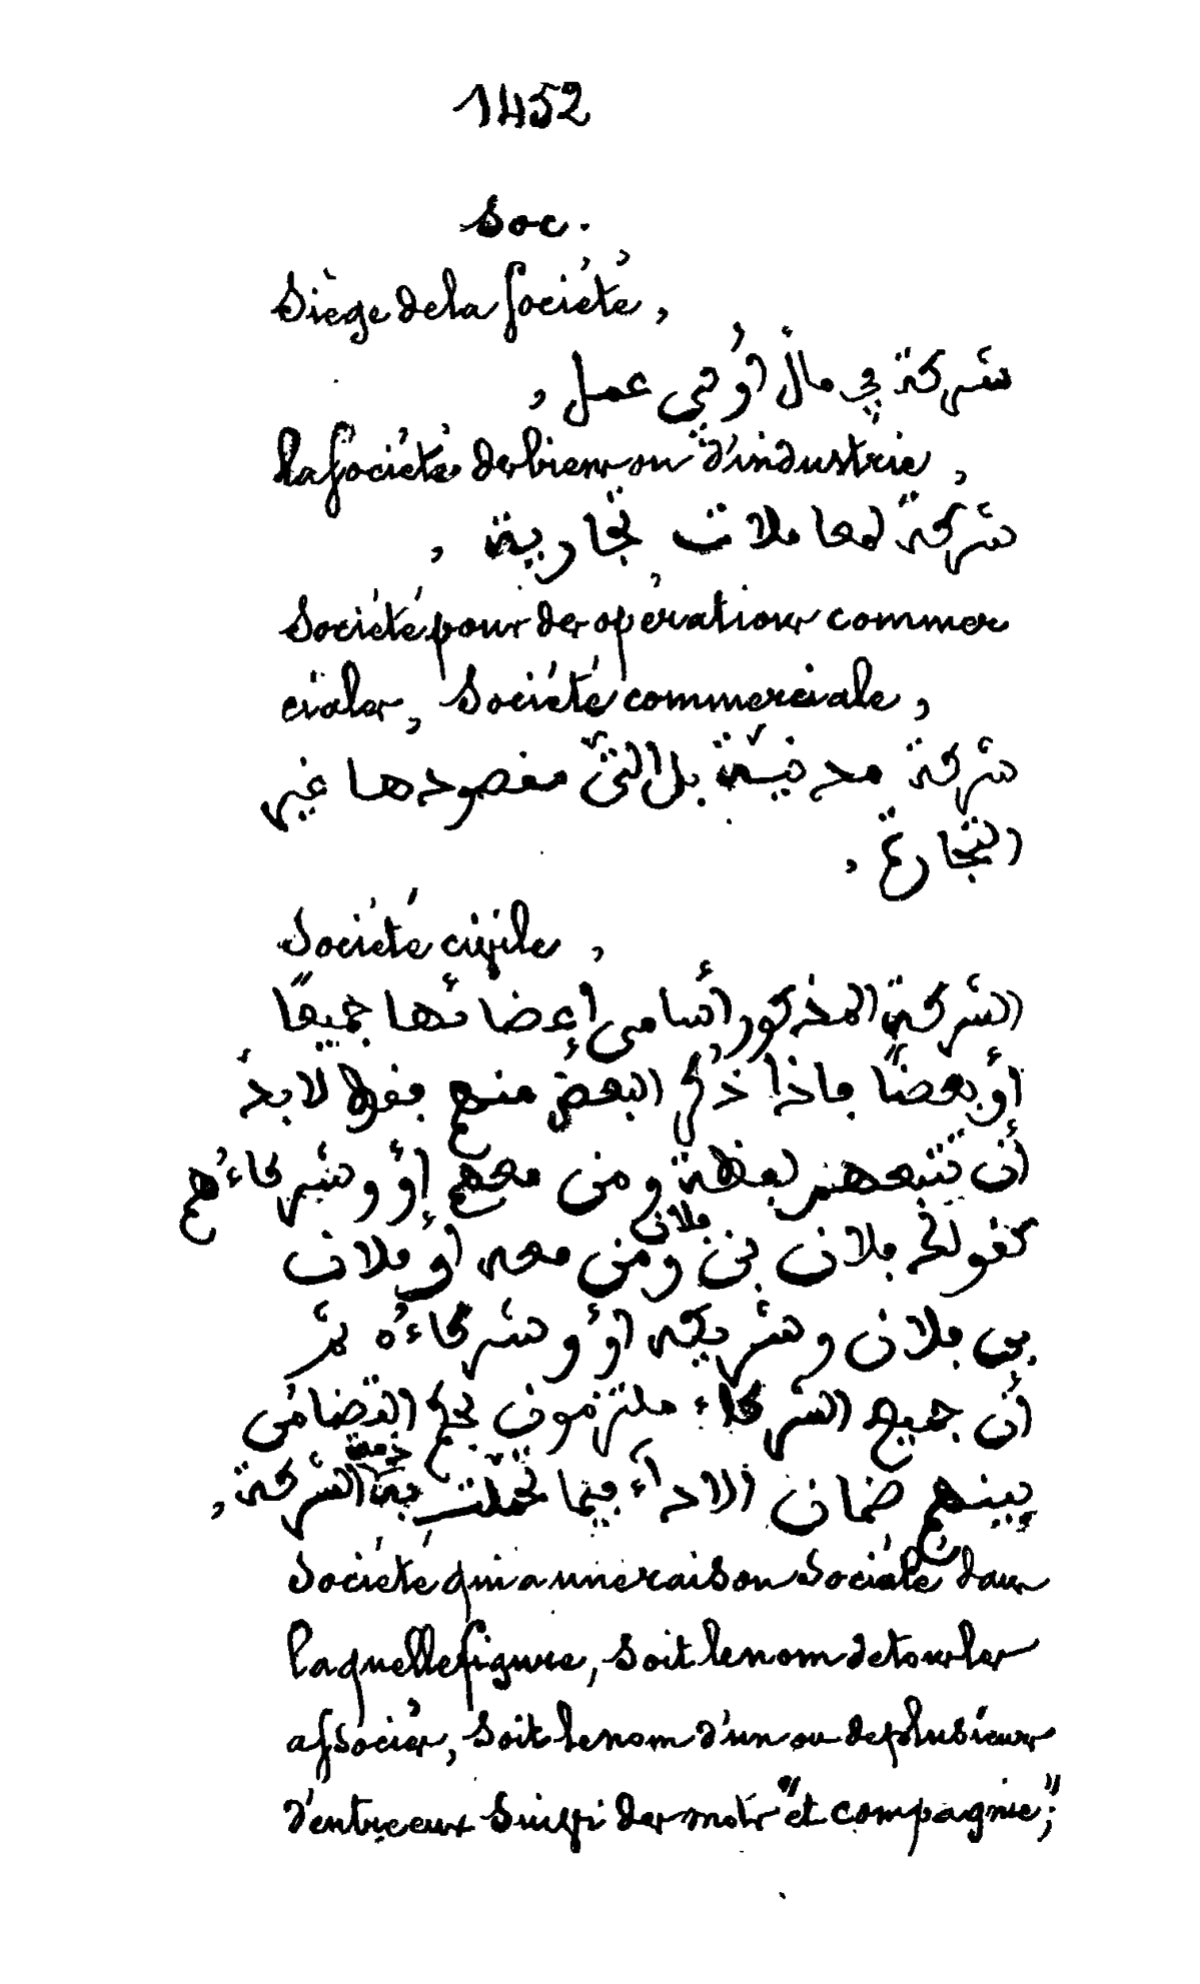 1452
Soc.
Siège de la Société,
شركة في مال أو في عمل,
la Société de biens ou d'industrie,
شركة لمعاملات تجارية,
Société pour des opérations commer
ciales, Société commerciale,
شركة مدنيّة بل التي مقصودها غير
التجارة,
Société civile,
الشركة المذكور أسامي أعضائها جميعًا
أو بعضًا فإذا ذُكر البعض منهم فقط لا بدّ
أن تتبعهم لفظة ومن معهم أو وشركاءُهم
كقولك فلان بن فلان ومن معه أو فلان
بن فلان وشريكه أو وشركاءُه ثم
أن جميع الشركاء ملتزمون بحكم التضامن
بينهم ضمان الأداء فيما تحمّلت به ذمة الشركة,
Société qui a une raison Sociale dans
laquelle figure, soit le nom de tous les
associés, soit le nom d'un ou de plusieurs
d'entre eux suivi des mots "et compagnie;"